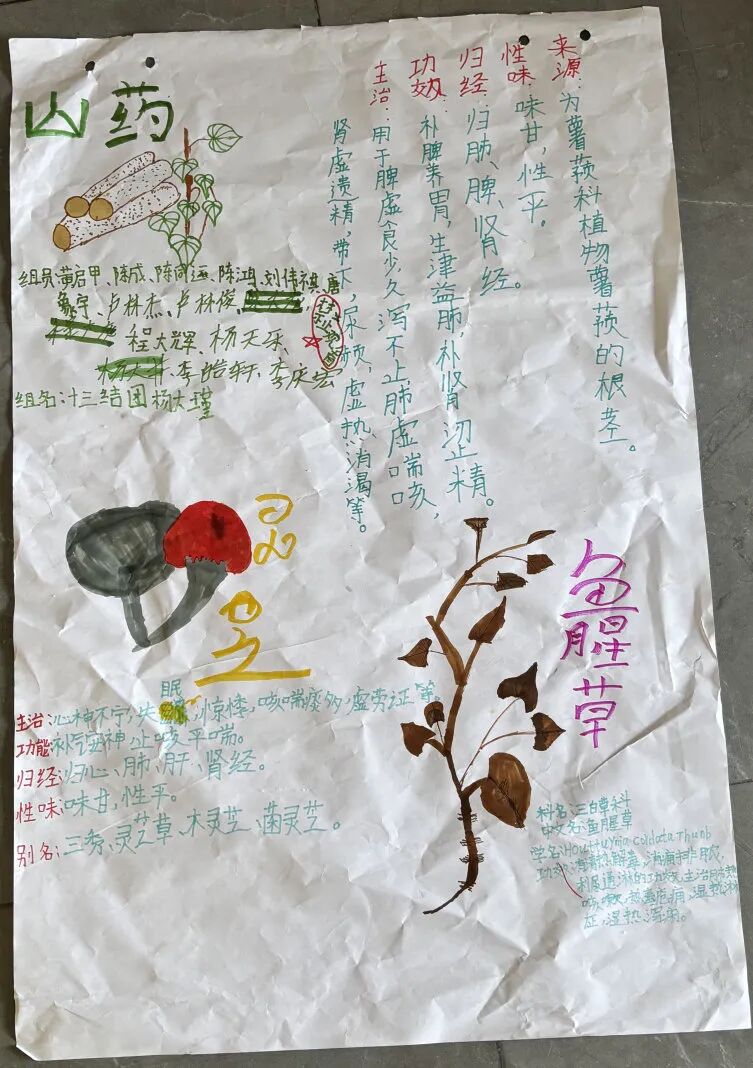 山药
来源：为薯蓣科植物薯蓣的根茎。
性味：味甘，性平。
归经：归肺、脾、肾经。
功效：补脾养胃，生津益肺，补肾涩精。
主治：用于脾虚食少久泻不止，肺虚喘咳，
肾虚遗精，带下，尿频，虚热消渴等。
组员：黄启甲、陈成、陈、陈鸿、刘伟祺、唐
宇、卢林杰、卢林俊、
程大辉、杨天乐、
李皓轩、李庆宏
组名：十三结团杨大瑾
灵芝
主治：心神不宁，失眠，惊悸，咳喘痰多，虚劳证等。
功能：补气安神，止咳平喘。
归经：归心、肺、肝、肾经。
性味：味甘，性平。
别名：三秀、灵芝草、木灵芝、菌灵芝。
鱼腥草
科名：三白草科
中文名：鱼腥草
学名：Houttuynia coldata Thunb
功效：清热解毒，消痈排脓，
利尿通淋的功效，主治肺热
咳嗽，热毒疮痈，湿热淋
症，湿热泻痢。